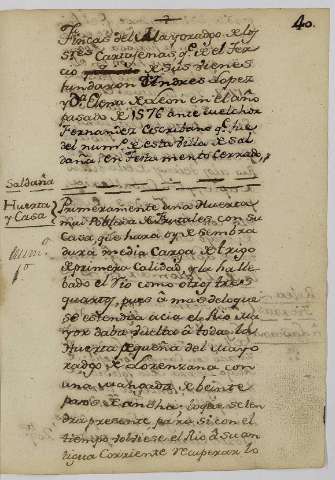 40.
Fincas del Mayorazgo de los
Sres Cartajenas qe. de el Ter-
cio y de sus vienes
fundaron Andres Lopez
y Da. Elena de Leon en el año
pasado de 1576 ante Melchor
Fernandez Escribano qe. fue
del numo. de esta Villa de Sal-
daña en Testamento Cerrado,
Saldaña
Huerta
y Casa
Primeramente una Huerta
mui Poblera de frutales con su
Casa, que hará oy de sembra
dura media Carga de trigo
de primera Calidad, y la ha lle-
bado el Rio como otros tres
quartos, pues à mas de lo que
se estendia acia el Rio ma-
yor daba vuelta â toda la
Huerta pequeña del mayo-
razgo de Lorenzana con
una de beinte
pasos de ancha, lo que se ten-
drá presente para si con el
tiempo bolviese el Rio â su an
tigua Corriente recuperar lo